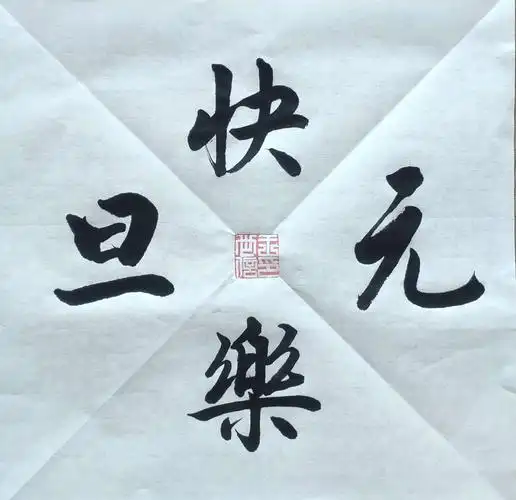 元旦
快樂